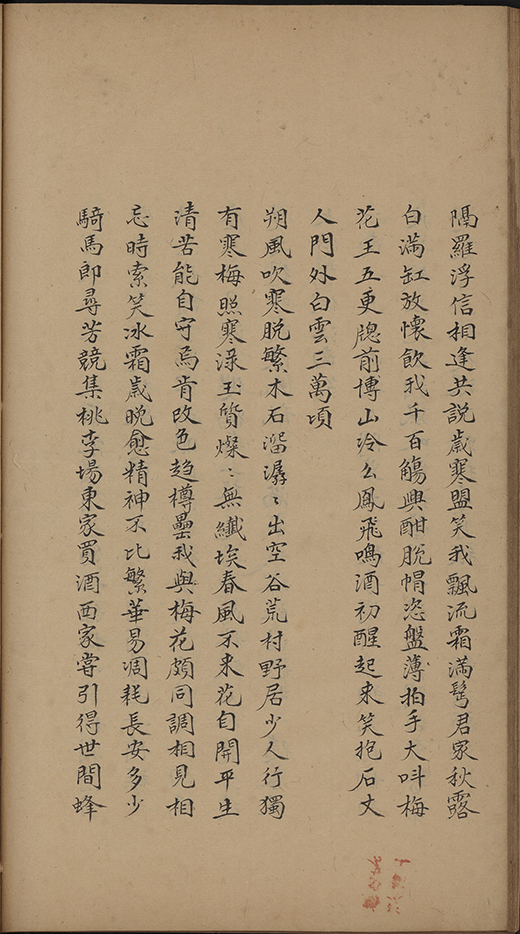 隔羅浮信相逢共説歳寒盟笑我飄流霜滿髩君家秋露
白滿缸放懷飲我千百觴興酣脫帽恣盤薄拍手大呌梅
花王五更牕前博山冷么鳳飛鳴酒初醒起来笑抱石丈
人門外白雲三萬頃
朔風吹寒脫繁木石溜潺〻出空谷荒村野居少人行獨
有寒梅照寒渌玉質燦〻無纖埃春風不来花自開平生
清苦能自守焉肯改色趋樽罍我與梅花頗同調相見相
忘時索笑冰霜歳晩愈精神不比繁華易凋耗長安多少
騎馬郎尋芳競集桃李塲東家買酒西家嘗引得世間蜂